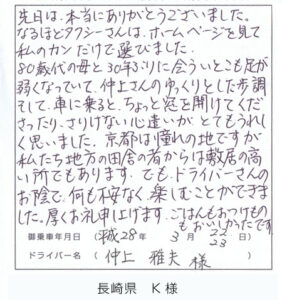 先日は、本当にありがとうございました。
なるほどタクシーさんは、ホームページを見て
私のカンだけで選びました。
80歳代の母と30年ぶりに会ういとこも足が
弱くなっていて、仲上さんのゆっくりとした歩調
そして、車に乗ると、ちょっと窓を開けてくだ
さったり、さりげない心遣いがとてもうれし
く思いました。京都は憧れの地ですが
私たち地方の田舎の者からは敷居の高
い所でもあります。でも、ドライバーさんの
お陰で、何も不安なく楽しむことができま
した。厚くお礼申し上げます。ごはんもおつけもの
もおいしかったです。
御乗車年月日 (平成28年 3月 22 23
ドライバー名 ( 仲上 雅夫 様
長崎県 K様